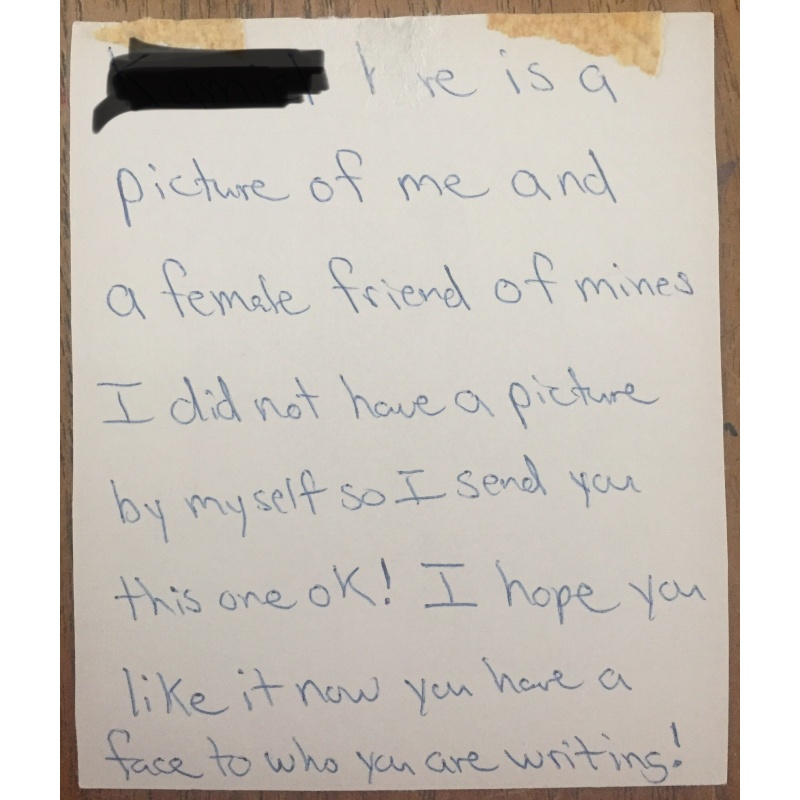 is a
picture of me and
a female friend of mines
I did not have a picture
by myself so I send you
this one ok! I hope you
like it now you have a
face to who you are writing!